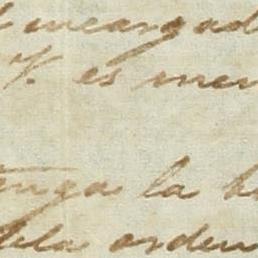 encargad
V. es mer
tenga la b
dela orden